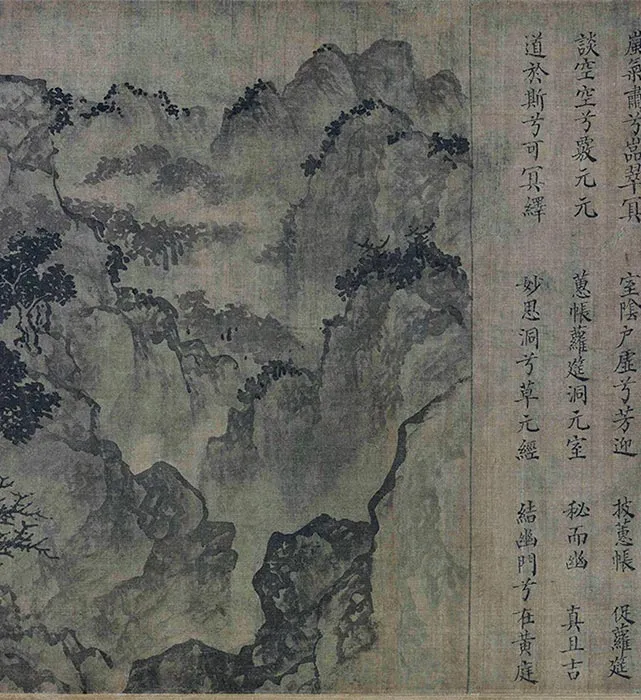 嵐氣肅兮嵓翠冥 室陰户虛兮芳迎 披蕙帳 促蘿筵
談空空兮覈元元 蕙帳蘿筵洞元室 秘而幽 真且吉
道於斯兮可冥繹 妙思洞兮草元經 結幽門兮在黃庭